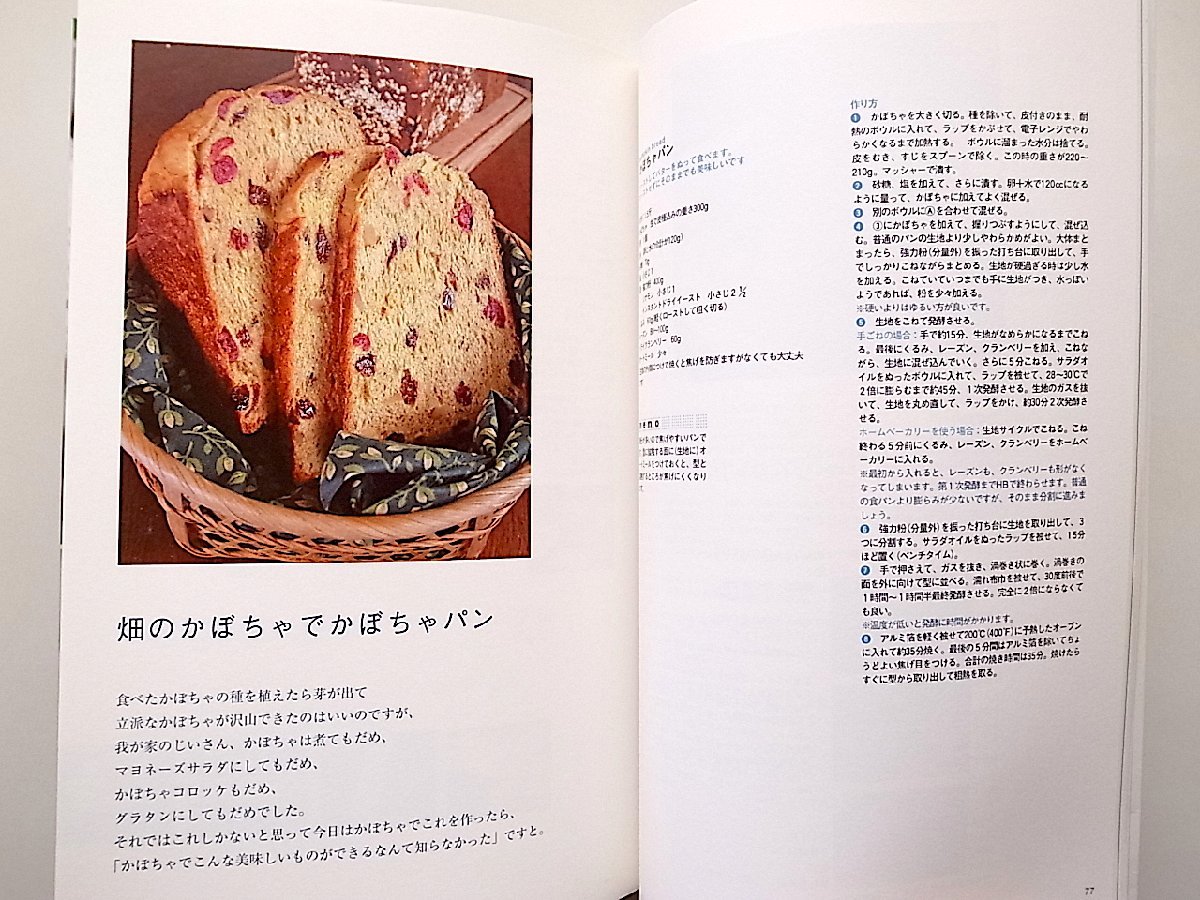 畑のかぼちゃでかぼちゃパン
食べたかぼちゃの種を植えたら芽が出て
立派なかぼちゃが沢山できたのはいいのですが、
我が家のじいさん、かぼちゃは煮てもだめ、
マヨネーズサラダにしてもだめ、
かぼちゃコロッケもだめ、
グラタンにしてもだめでした。
それではこれしかないと思って今日はかぼちゃでこれを作ったら、
「かぼちゃでこんな美味しいものができるなんて知らなかった」ですと。
bread
ちゃパン
ストしてバターをぬって食べます。
ストせずにそのままでも美味しいです
種込みの重さ300g
120g)
400g
ナモン 小さじ1
スタントドライイースト 小さじ2 ½
60g(軽くローストして粗く切る)
ズン 80〜100g
クランベリー 60g
ミール 少々
につけて焼くと焦げを防ぎますがなくても大丈夫
memo
ので焦げやすいパンで
する面に(生地に)オ
ミールをつけておくと、型と
するところが焦げにくくなり
す
作り方
1 かぼちゃを大きく切る。種を除いて、皮付きのまま、耐
熱のボウルに入れて、ラップをかぶせて、電子レンジでやわ
らかくなるまで加熱する。 ボウルに溜まった水分は捨てる。
皮をむき、すじをスプーンで除く。この時の重さが220〜
210g。マッシャーで潰す。
2 砂糖、塩を加えて、さらに潰す。卵+水で120ccになる
ように量って、かぼちゃに加えてよく混ぜる。
3 別のボウルにⒶを合わせて混ぜる。
4 ③にかぼちゃを加えて、握りつぶすようにして、混ぜ込
む。普通のパンの生地より少しやわらかめがよい。大体まと
まったら、強力粉(分量外)を振った打ち台に取り出して、手
でしっかりこねながらまとめる。生地が硬過ぎる時は少し水
を加える。こねていていつまでも手に生地がつき、水っぽい
ようであれば、粉を少々加える。
※硬いよりはゆるい方が良いです。
5 生地をこねて発酵させる。
手ごねの場合:手で約15分、生地がなめらかになるまでこね
る。最後にくるみ、レーズン、クランベリーを加え、こねな
がら、生地に混ぜ込んでいく。さらに5分こねる。サラダオ
イルをぬったボウルに入れて、ラップを被せて、28〜30℃で
2倍に膨らむまで約45分、1次発酵させる。生地のガスを抜
いて、生地を丸め直して、ラップをかけ、約30分2次発酵さ
せる。
ホームベーカリーを使う場合:生地サイクルでこねる。こね
終わる5分前にくるみ、レーズン、クランベリーをホームベ
ーカリーに入れる。
※最初から入れると、レーズンも、クランベリーも形がなく
なってしまいます。第1次発酵までHBで終わらせます。普通
の食パンより膨らみが少ないですが、そのまま分割に進みま
しょう。
6 強力粉(分量外)を振った打ち台に生地を取り出して、3
つに分割する。サラダオイルをぬったラップを被せて、15分
ほど置く(ベンチタイム)。
7 手で押さえて、ガスを抜き、渦巻き状に巻く。渦巻きの
面を外に向けて型に並べる。濡れ布巾を被せて、30度前後で
1時間〜1時間半最終発酵させる。完全に2倍にならなくて
も良い。
※温度が低いと発酵に時間がかかります。
8 アルミ箔を軽く被せて200℃(400℉)に予熱したオーブン
に入れて約35分焼く。最後の5分間はアルミ箔を除いてちょ
うどよい焦げ目をつける。合計の焼き時間は35分。焼けたら
すぐに型から取り出して粗熱を取る。
77